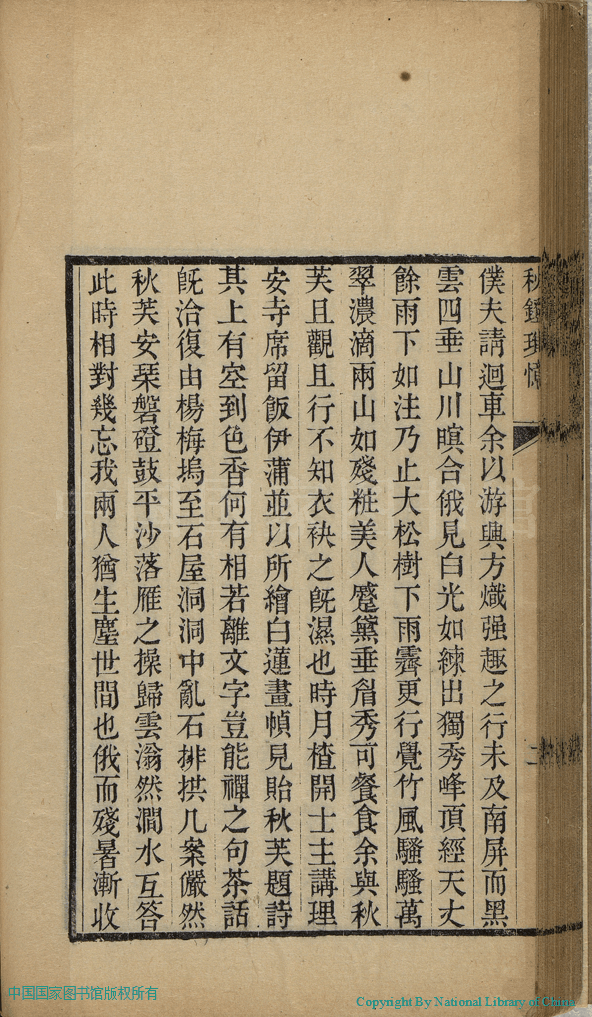 秋鐙瑣憶
二
僕夫請迴車余以游興方熾强趣之行未及南屏而黑
雲四垂山川瞑合俄見白光如練出獨秀峰頂經天丈
餘雨下如注乃止大松樹下雨霽更行覺竹風騷騷萬
翠濃滴兩山如殘粧美人蹙黛垂眉秀可餐食余與秋
芙且觀且行不知衣袂之旣濕也時月楂開士主講理
安寺席留飯伊蒲並以所繪白蓮畫幀見貽秋芙題詩
其上有空到色香何有相若離文字豈能禪之句茶話
旣洽復由楊梅塢至石屋洞洞中亂石排拱几案儼然
秋芙安琹磐磴鼓平沙落雁之操歸雲滃然澗水互答
此時相對幾忘我兩人猶生塵世間也俄而殘暑漸收
中国国家图书馆版权所有
Copyright By National Library of China